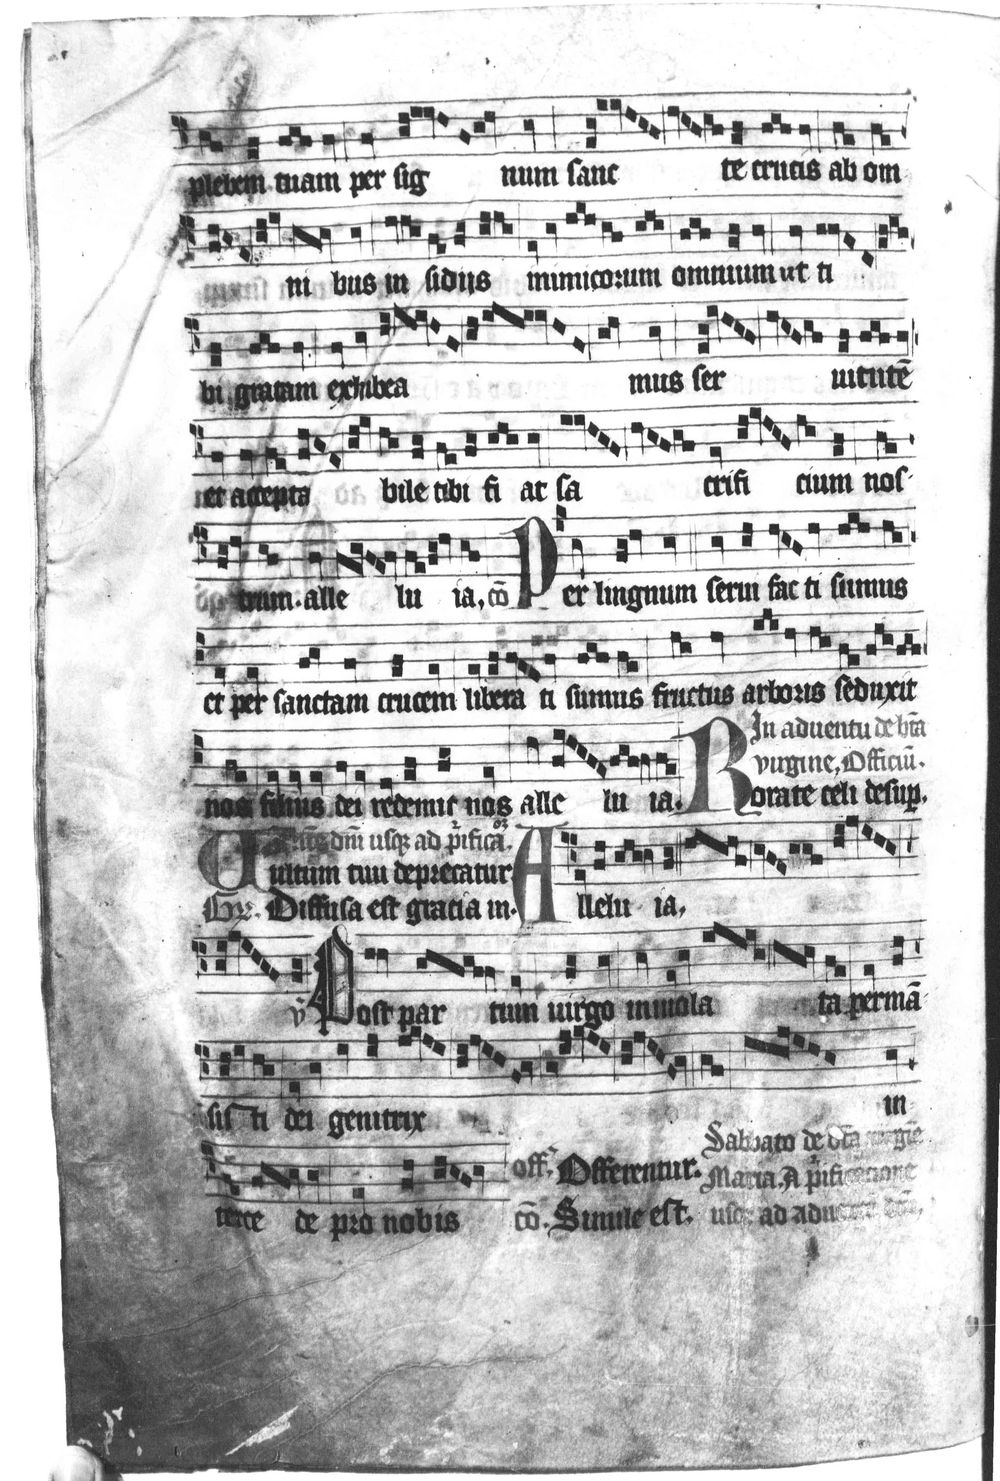 plebem tuam per sig num sanc te crucis ab om
ni bus in sidijs inimicorum omnium ut ti
bi gratam exhibea mus ser uitutē
et accepta bile tibi fi at sa crifi cium nos
trum. alle lu ia, cō Per lingnum serui fac ti sumus
et per sanctam crucem libera ti sumus fructus arboris seduxit
nos filius dei redemit nos alle lu ia.
In aduentu de bt̄a
virgine, Officiū.
Rorate celi desup.
dm̄ usq; ad p̄ificā.
Uultum tuu deprecatur
Gr̄. Diffusa est gracia in. Allelu ia,
v̄ Post par tum uirgo inuiola ta permā
sis ti dei genitrix in
terce de pro nobis
off. Offerentur.
cō. Simile est.
Sabbato de
Maria, A
usq; ad